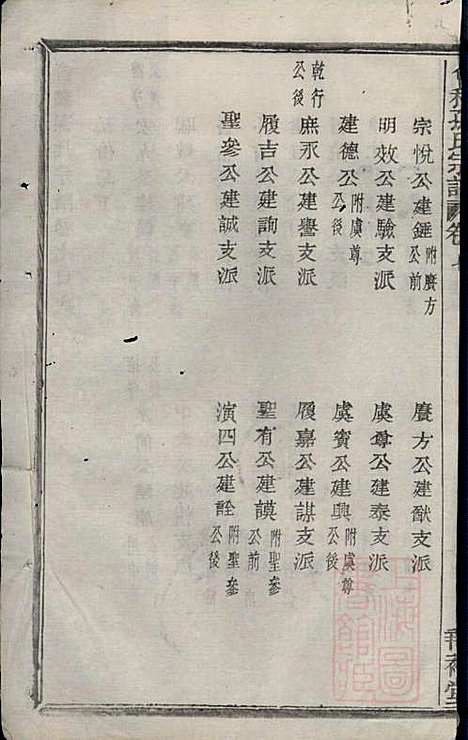 宗悅公建錘附賡方公前
賡方公建猷支派
明效公建驗支派
虞尊公建泰支派
建德公附虞尊公後
虞賓公建興附虞尊公後
乾行公後
庶永公建譽支派
履嘉公建謀支派
履吉公建詢支派
聖有公建謨附聖參公前
聖參公建誠支派
演四公建詮附聖參公後
氏宗譜
卷
堂
上海圖書館藏